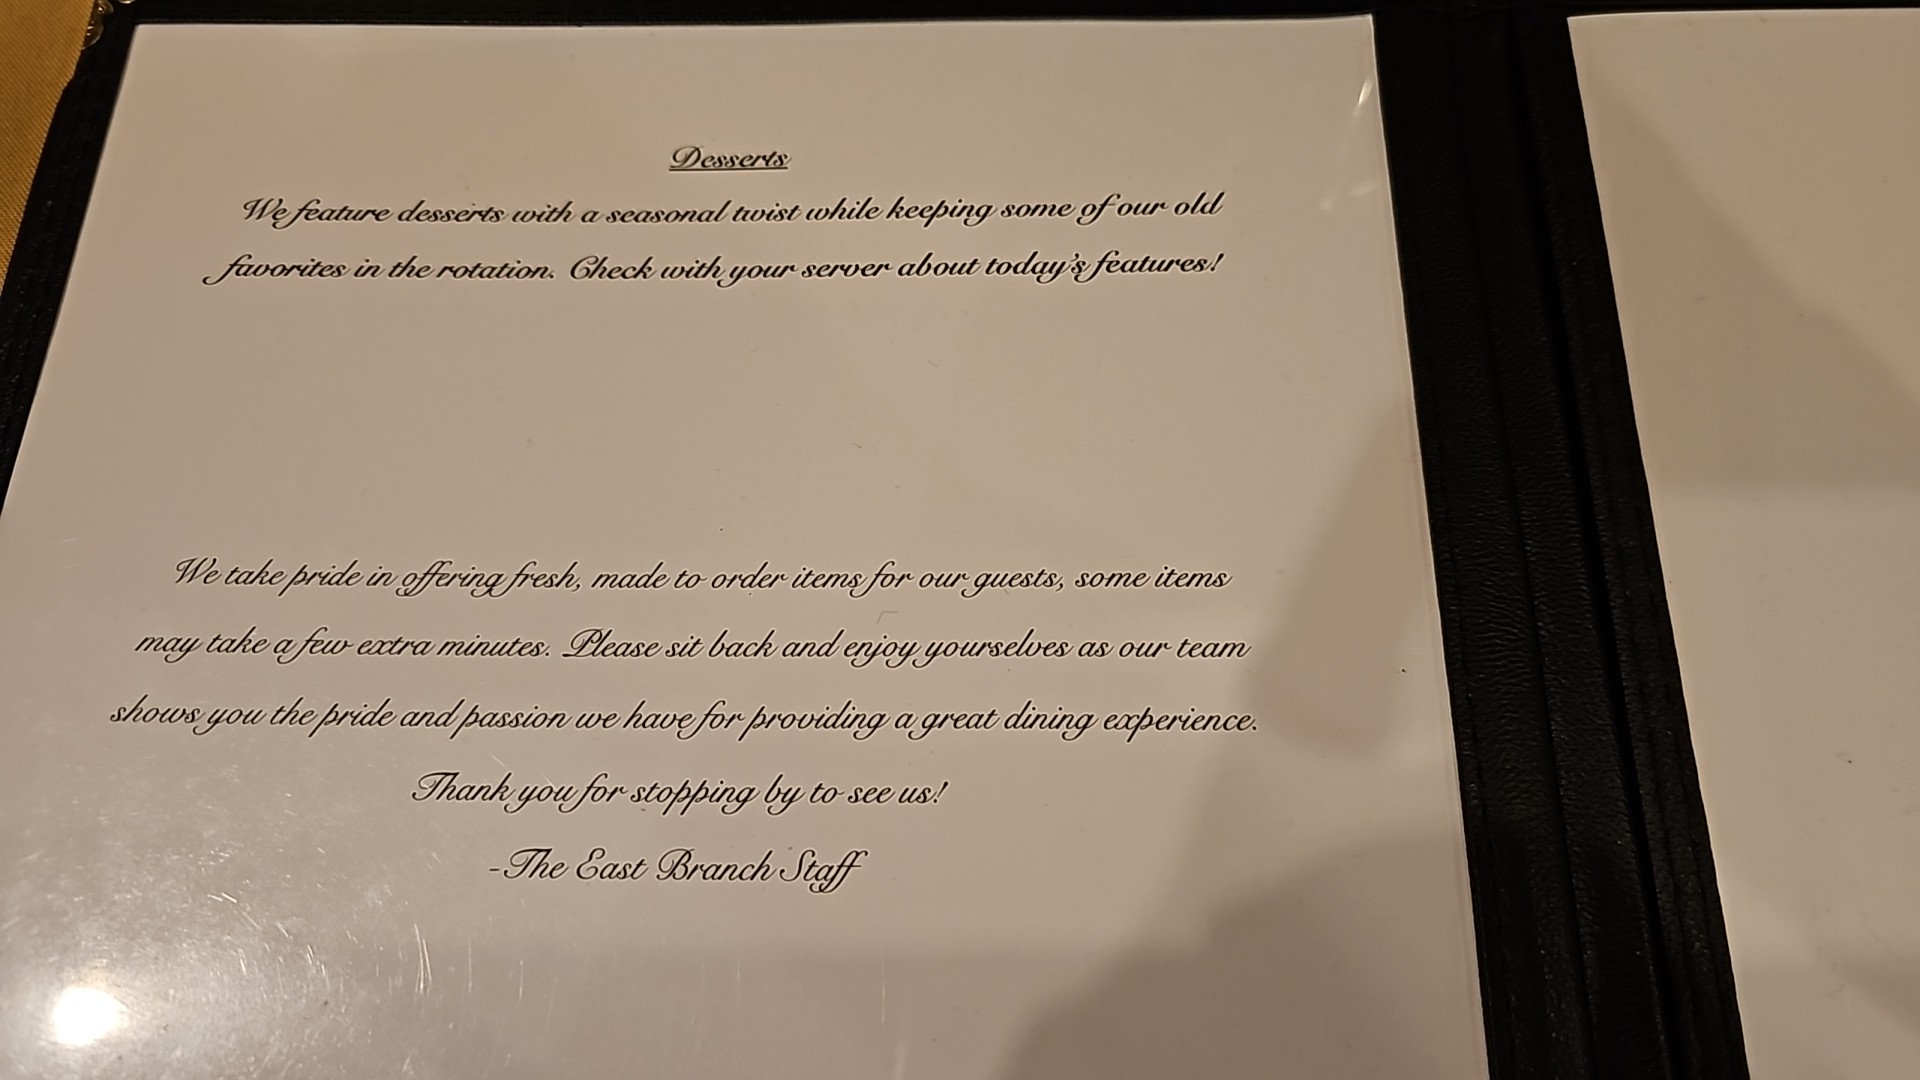 Desserts
We feature desserts with a seasonal twist while keeping some of our old
favorites in the rotation. Check with your server about today's features!
We take pride in offering fresh, made to order items for our guests, some items
may take a few extra minutes. Please sit back and enjoy yourselves as our team
shows you the pride and passion we have for providing a great dining experience.
Thank you for stopping by to see us!
-The East Branch Staff